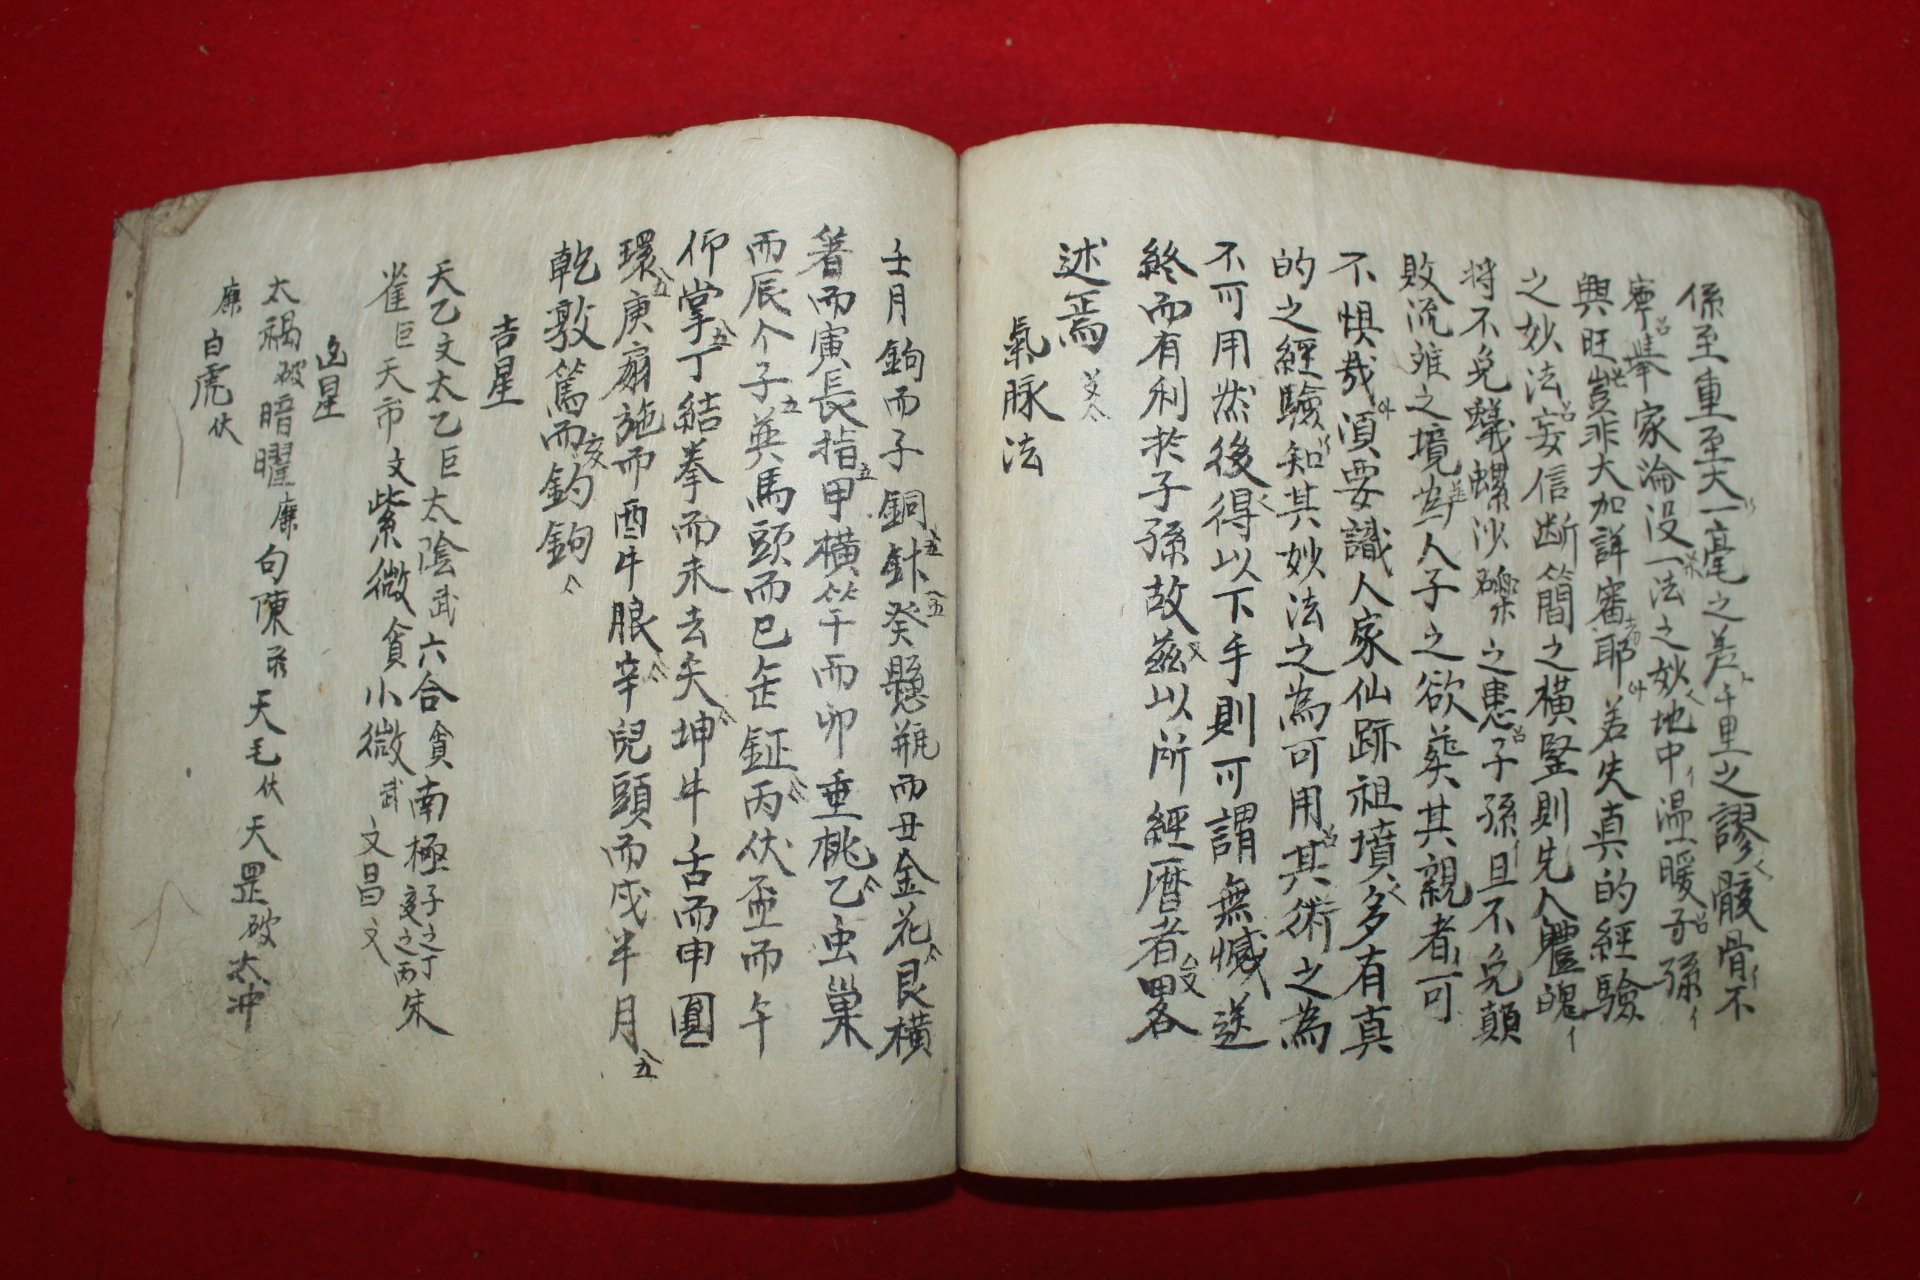 係至重至大一毫之差千里之謬骸骨不
寧擧家淪沒一法之妙地中溫暖子孫
興旺豈非大加詳審耶若失真的經驗
之妙法妄信断簡之橫竪則先人體魄
將不免蟻螺沙礫之患子孫且不免顛
敗流離之境為人子之欲葬其親者可
不惧哉須要識人家仙跡祖墳多有真
的之經驗知其妙法之為可用其術之為
不可用然後得以下手則可謂無憾送
終而有利於子孫故茲以所經曆者畧
述焉
氣脉法
壬月鉤而子銅 癸懸瓶而丑金花艮橫
著而寅長指甲橫竿而卯垂桃乙虫巢
而辰个子英馬頭而巳缶鉦丙伏盃而午
仰掌丁結拳而未去矢坤牛舌而申圓
環庚扇施而酉牛腺辛兒頭而戌半月
乾敦篤而釣鉤
吉星
天乙文太乙巨太陰武六合貪南極子之丁亥之丙朱
雀巨天市文紫微貪小微武文昌文
凶星
太禍破暗曜廉句陳 天毛伏天罡破太冲
廉白虎伏